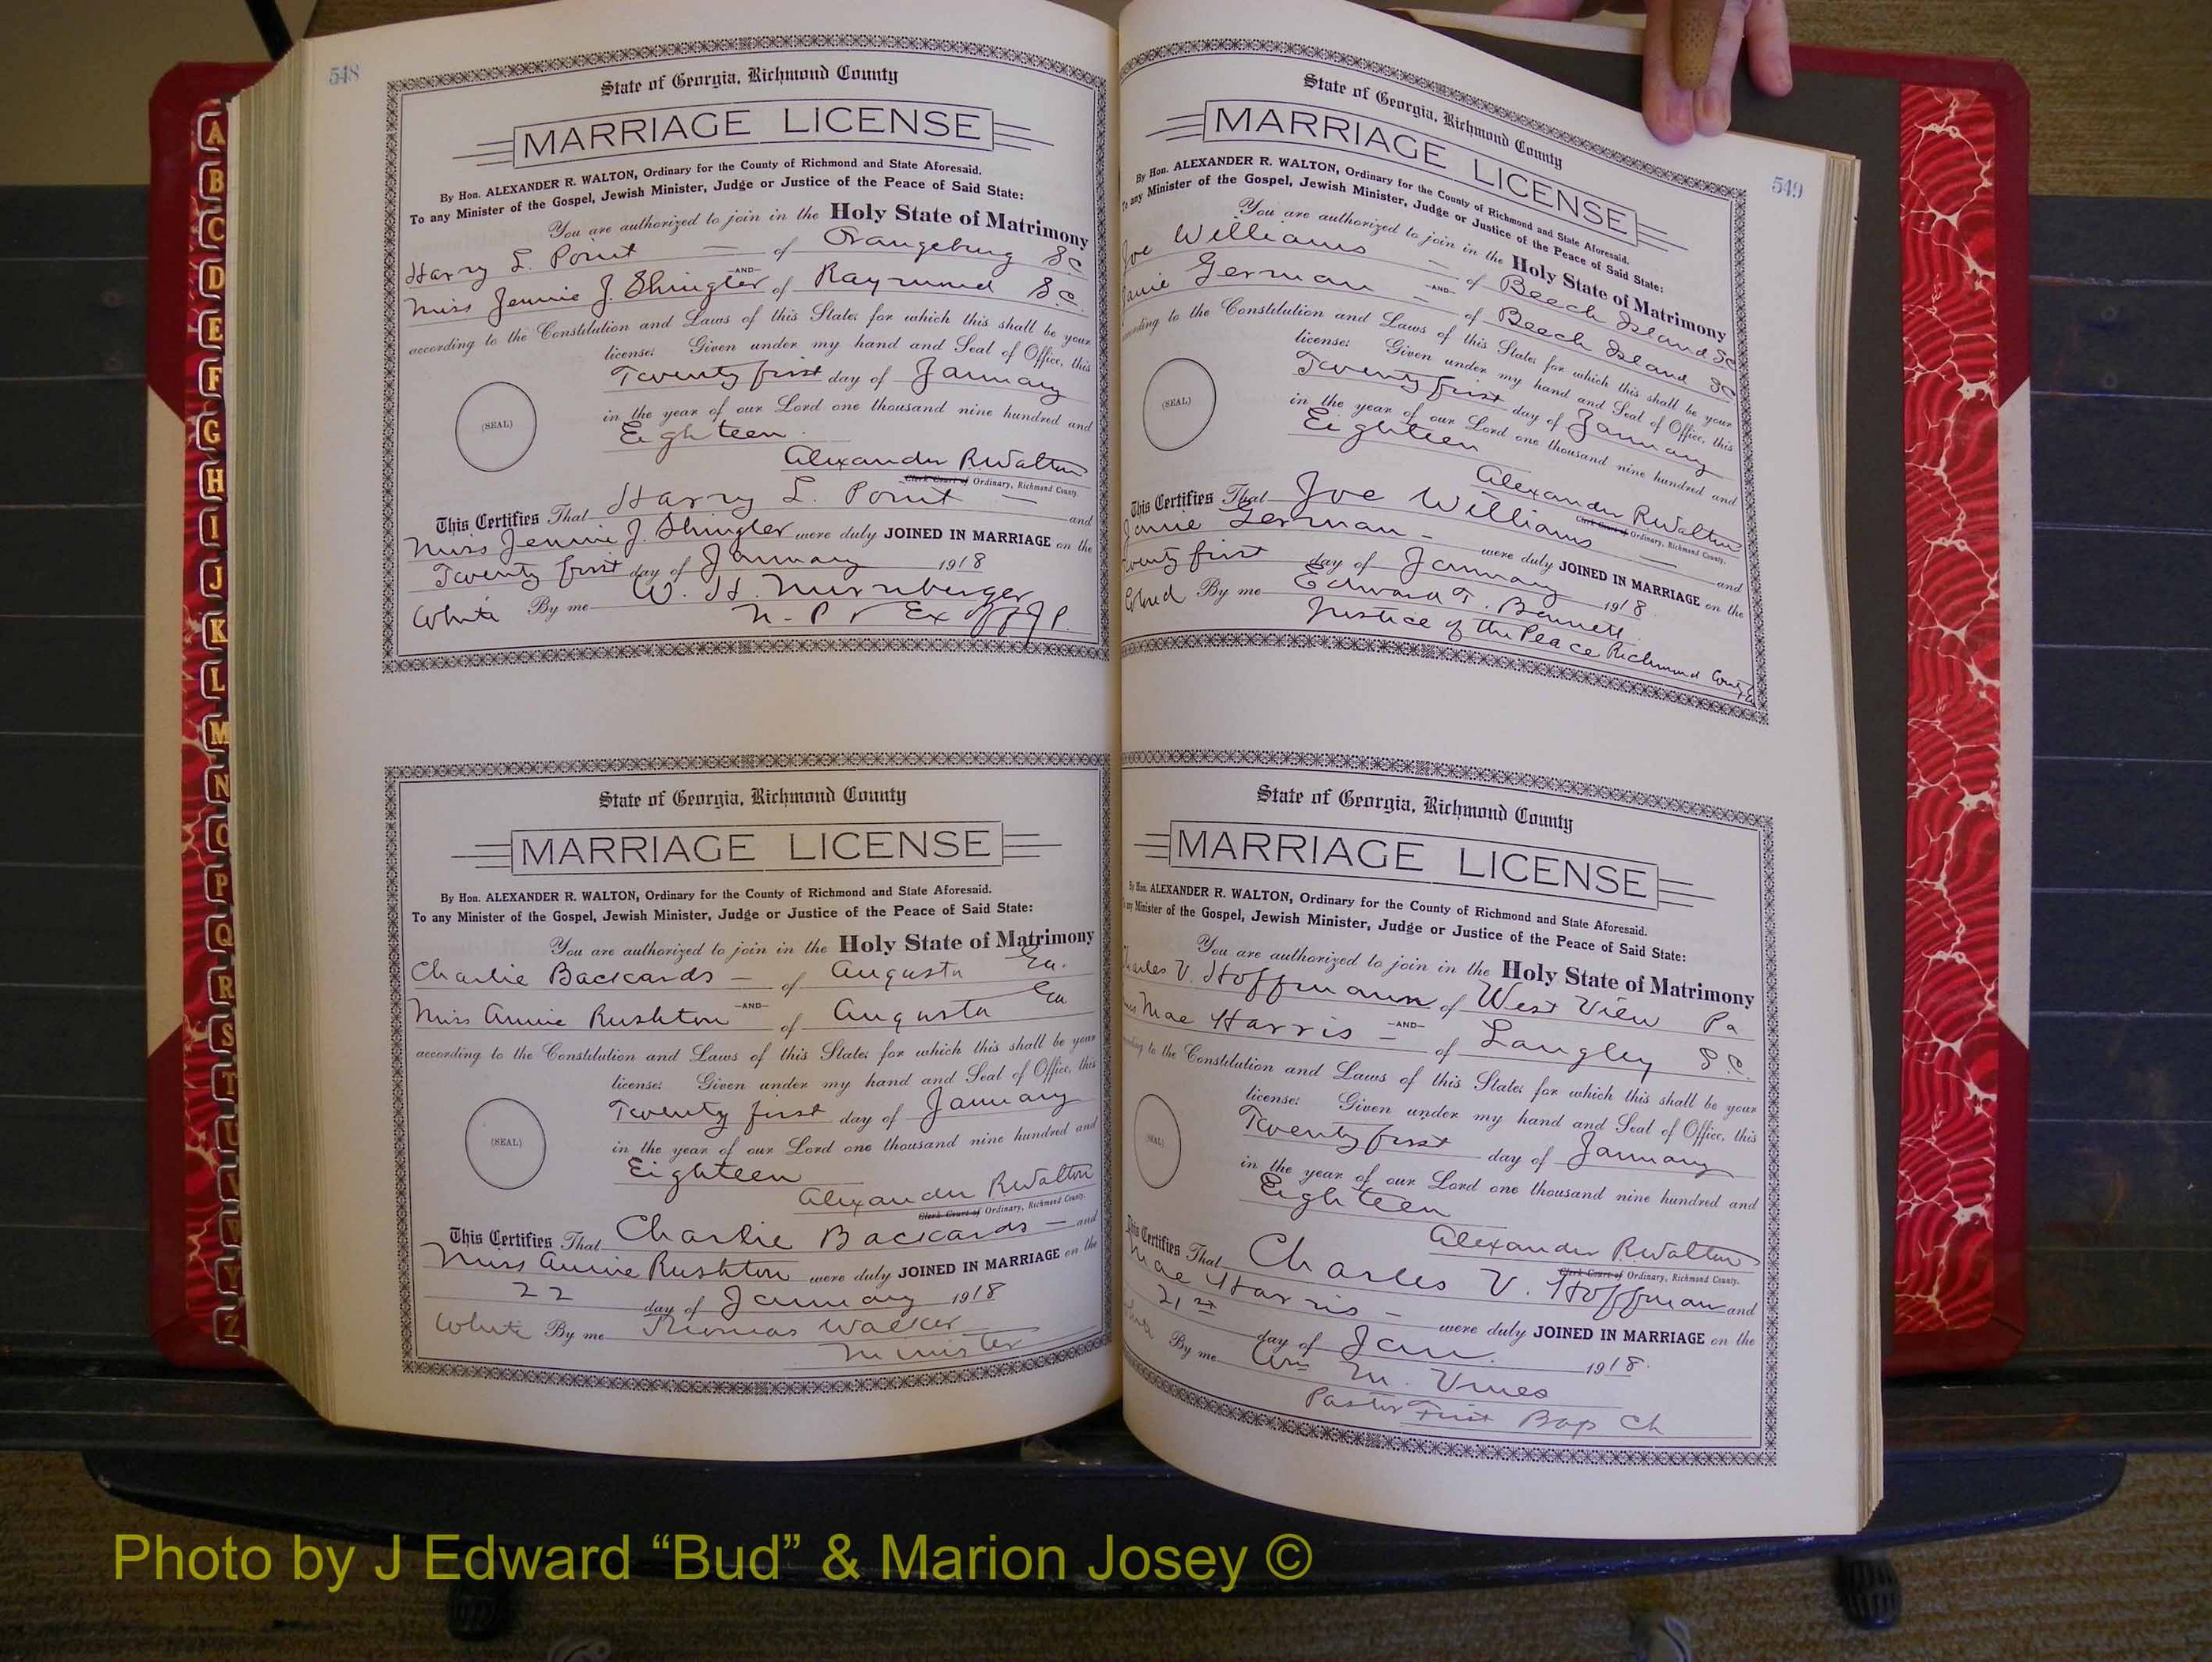 548
State of Georgia, Richmond County
MARRIAGE LICENSE
By Hon. ALEXANDER R. WALTON, Ordinary for the County of Richmond and State Aforesaid.
To any Minister of the Gospel, Jewish Minister, Judge or Justice of the Peace of Said State:
You are authorized to join in the Holy State of Matrimony
Harry L. Point — of Orangeburg S C
-AND-
Miss Jennie J. Shingler of Raymond S.C.
according to the Constitution and Laws of this State; for which this shall be your
license; Given under my hand and Seal of Office, this
Twenty first day of January
in the year of our Lord one thousand nine hundred and
(SEAL)
Eighteen
Alexander R. Walton
Clerk Court of Ordinary, Richmond County.
This Certifies That Harry L. Point — and
Miss Jennie J. Shingler were duly JOINED IN MARRIAGE on the
Twenty first day of January 1918
White By me W. H. Nurnberger
N. P. & Ex Off J P.
State of Georgia, Richmond County
MARRIAGE LICENSE
By Hon. ALEXANDER R. WALTON, Ordinary for the County of Richmond and State Aforesaid.
To any Minister of the Gospel, Jewish Minister, Judge or Justice of the Peace of Said State:
You are authorized to join in the Holy State of Matrimony
Charlie Backards — of Augusta Ga.
-AND-
Miss Annie Rushton of Augusta Ga
according to the Constitution and Laws of this State; for which this shall be your
license; Given under my hand and Seal of Office, this
Twenty first day of January
(SEAL)
in the year of our Lord one thousand nine hundred and
Eighteen
Alexander R. Walton
Clerk Court of Ordinary, Richmond County.
This Certifies That Charlie Backards — and
Miss Annie Rushton were duly JOINED IN MARRIAGE on the
22 day of January 1918
White By me Thomas Walker
Minister
549
State of Georgia, Richmond County
MARRIAGE LICENSE
By Hon. ALEXANDER R. WALTON, Ordinary for the County of Richmond and State Aforesaid.
To any Minister of the Gospel, Jewish Minister, Judge or Justice of the Peace of Said State:
You are authorized to join in the Holy State of Matrimony
Joe Williams — of Beech Island SC
-AND-
German — of Beech Island SC
according to the Constitution and Laws of this State; for which this shall be your
license; Given under my hand and Seal of Office, this
Twenty first day of January
(SEAL)
in the year of our Lord one thousand nine hundred and
Eighteen
Alexander R. Walton
Clerk Court of Ordinary, Richmond County.
This Certifies That Joe Williams — and
German — were duly JOINED IN MARRIAGE on the
Twenty first day of January 1918
Colored By me Edward T. Bennett
Justice of the Peace Richmond County
State of Georgia, Richmond County
MARRIAGE LICENSE
By Hon. ALEXANDER R. WALTON, Ordinary for the County of Richmond and State Aforesaid.
To any Minister of the Gospel, Jewish Minister, Judge or Justice of the Peace of Said State:
You are authorized to join in the Holy State of Matrimony
Charles V. Hoffmann of West View Pa
-AND-
Miss Mae Harris — of Langley S.C.
according to the Constitution and Laws of this State; for which this shall be your
license; Given under my hand and Seal of Office, this
Twenty first day of January
(SEAL)
in the year of our Lord one thousand nine hundred and
Eighteen
Alexander R. Walton
Clerk Court of Ordinary, Richmond County.
This Certifies That Charles V. Hoffman and
Mae Harris — were duly JOINED IN MARRIAGE on the
21st day of Jan. 1918.
White By me Wm M. Vines
Pastor First Bap Ch
A
B
C
D
E
F
G
H
I
J
K
L
M
N
O
P
Q
R
S
T
U
V
W
Y
Z
Photo by J Edward “Bud” & Marion Josey ©